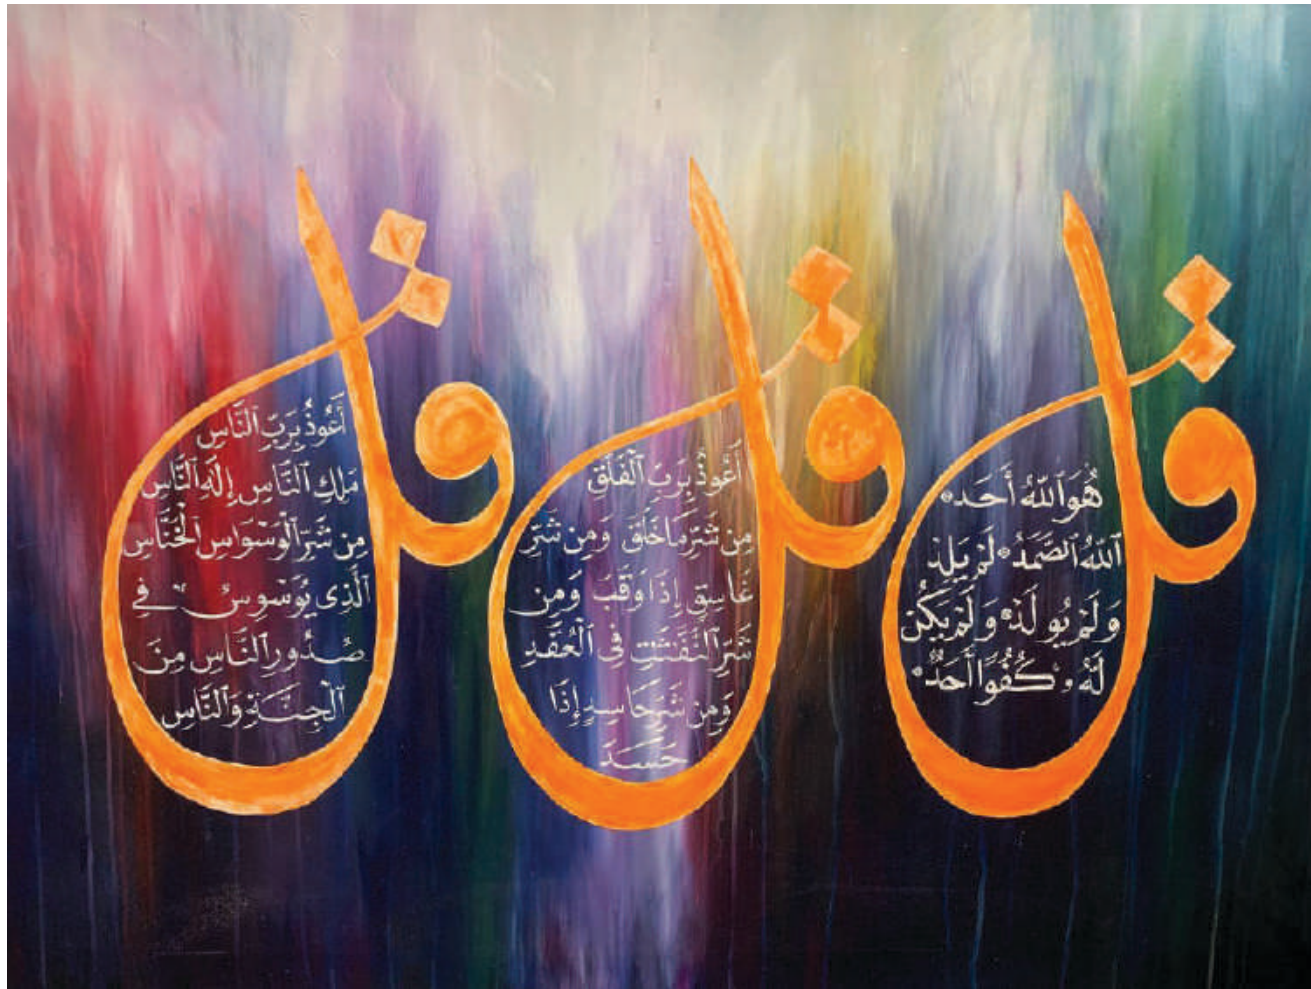 قل
هُوَ ٱللَّهُ أَحَدٌ
ٱللَّهُ ٱلصَّمَدُ لَمْ يَلِدْ
وَلَمْ يُولَدْ وَلَمْ يَكُن
لَهُۥ كُفُوًا أَحَدٌ
قل
أَعُوذُ بِرَبِّ ٱلْفَلَقِ
مِن شَرِّ مَا خَلَقَ وَمِن شَرِّ
غَاسِقٍ إِذَا وَقَبَ وَمِن
شَرِّ ٱلنَّفَّٰثَٰتِ فِى ٱلْعُقَدِ
وَمِن شَرِّ حَاسِدٍ إِذَا
حَسَدَ
قل
أَعُوذُ بِرَبِّ ٱلنَّاسِ
مَلِكِ ٱلنَّاسِ إِلَٰهِ ٱلنَّاسِ
مِن شَرِّ ٱلْوَسْوَاسِ ٱلْخَنَّاسِ
ٱلَّذِى يُوَسْوِسُ فِے
صُدُورِ ٱلنَّاسِ مِنَ
ٱلْجِنَّةِ وَٱلنَّاسِ